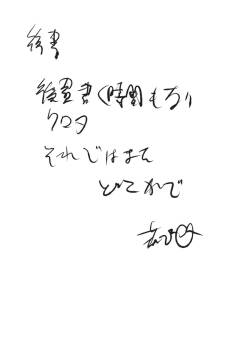 後書
後書書く時間もろり
クロタ
それではまた
どこかで